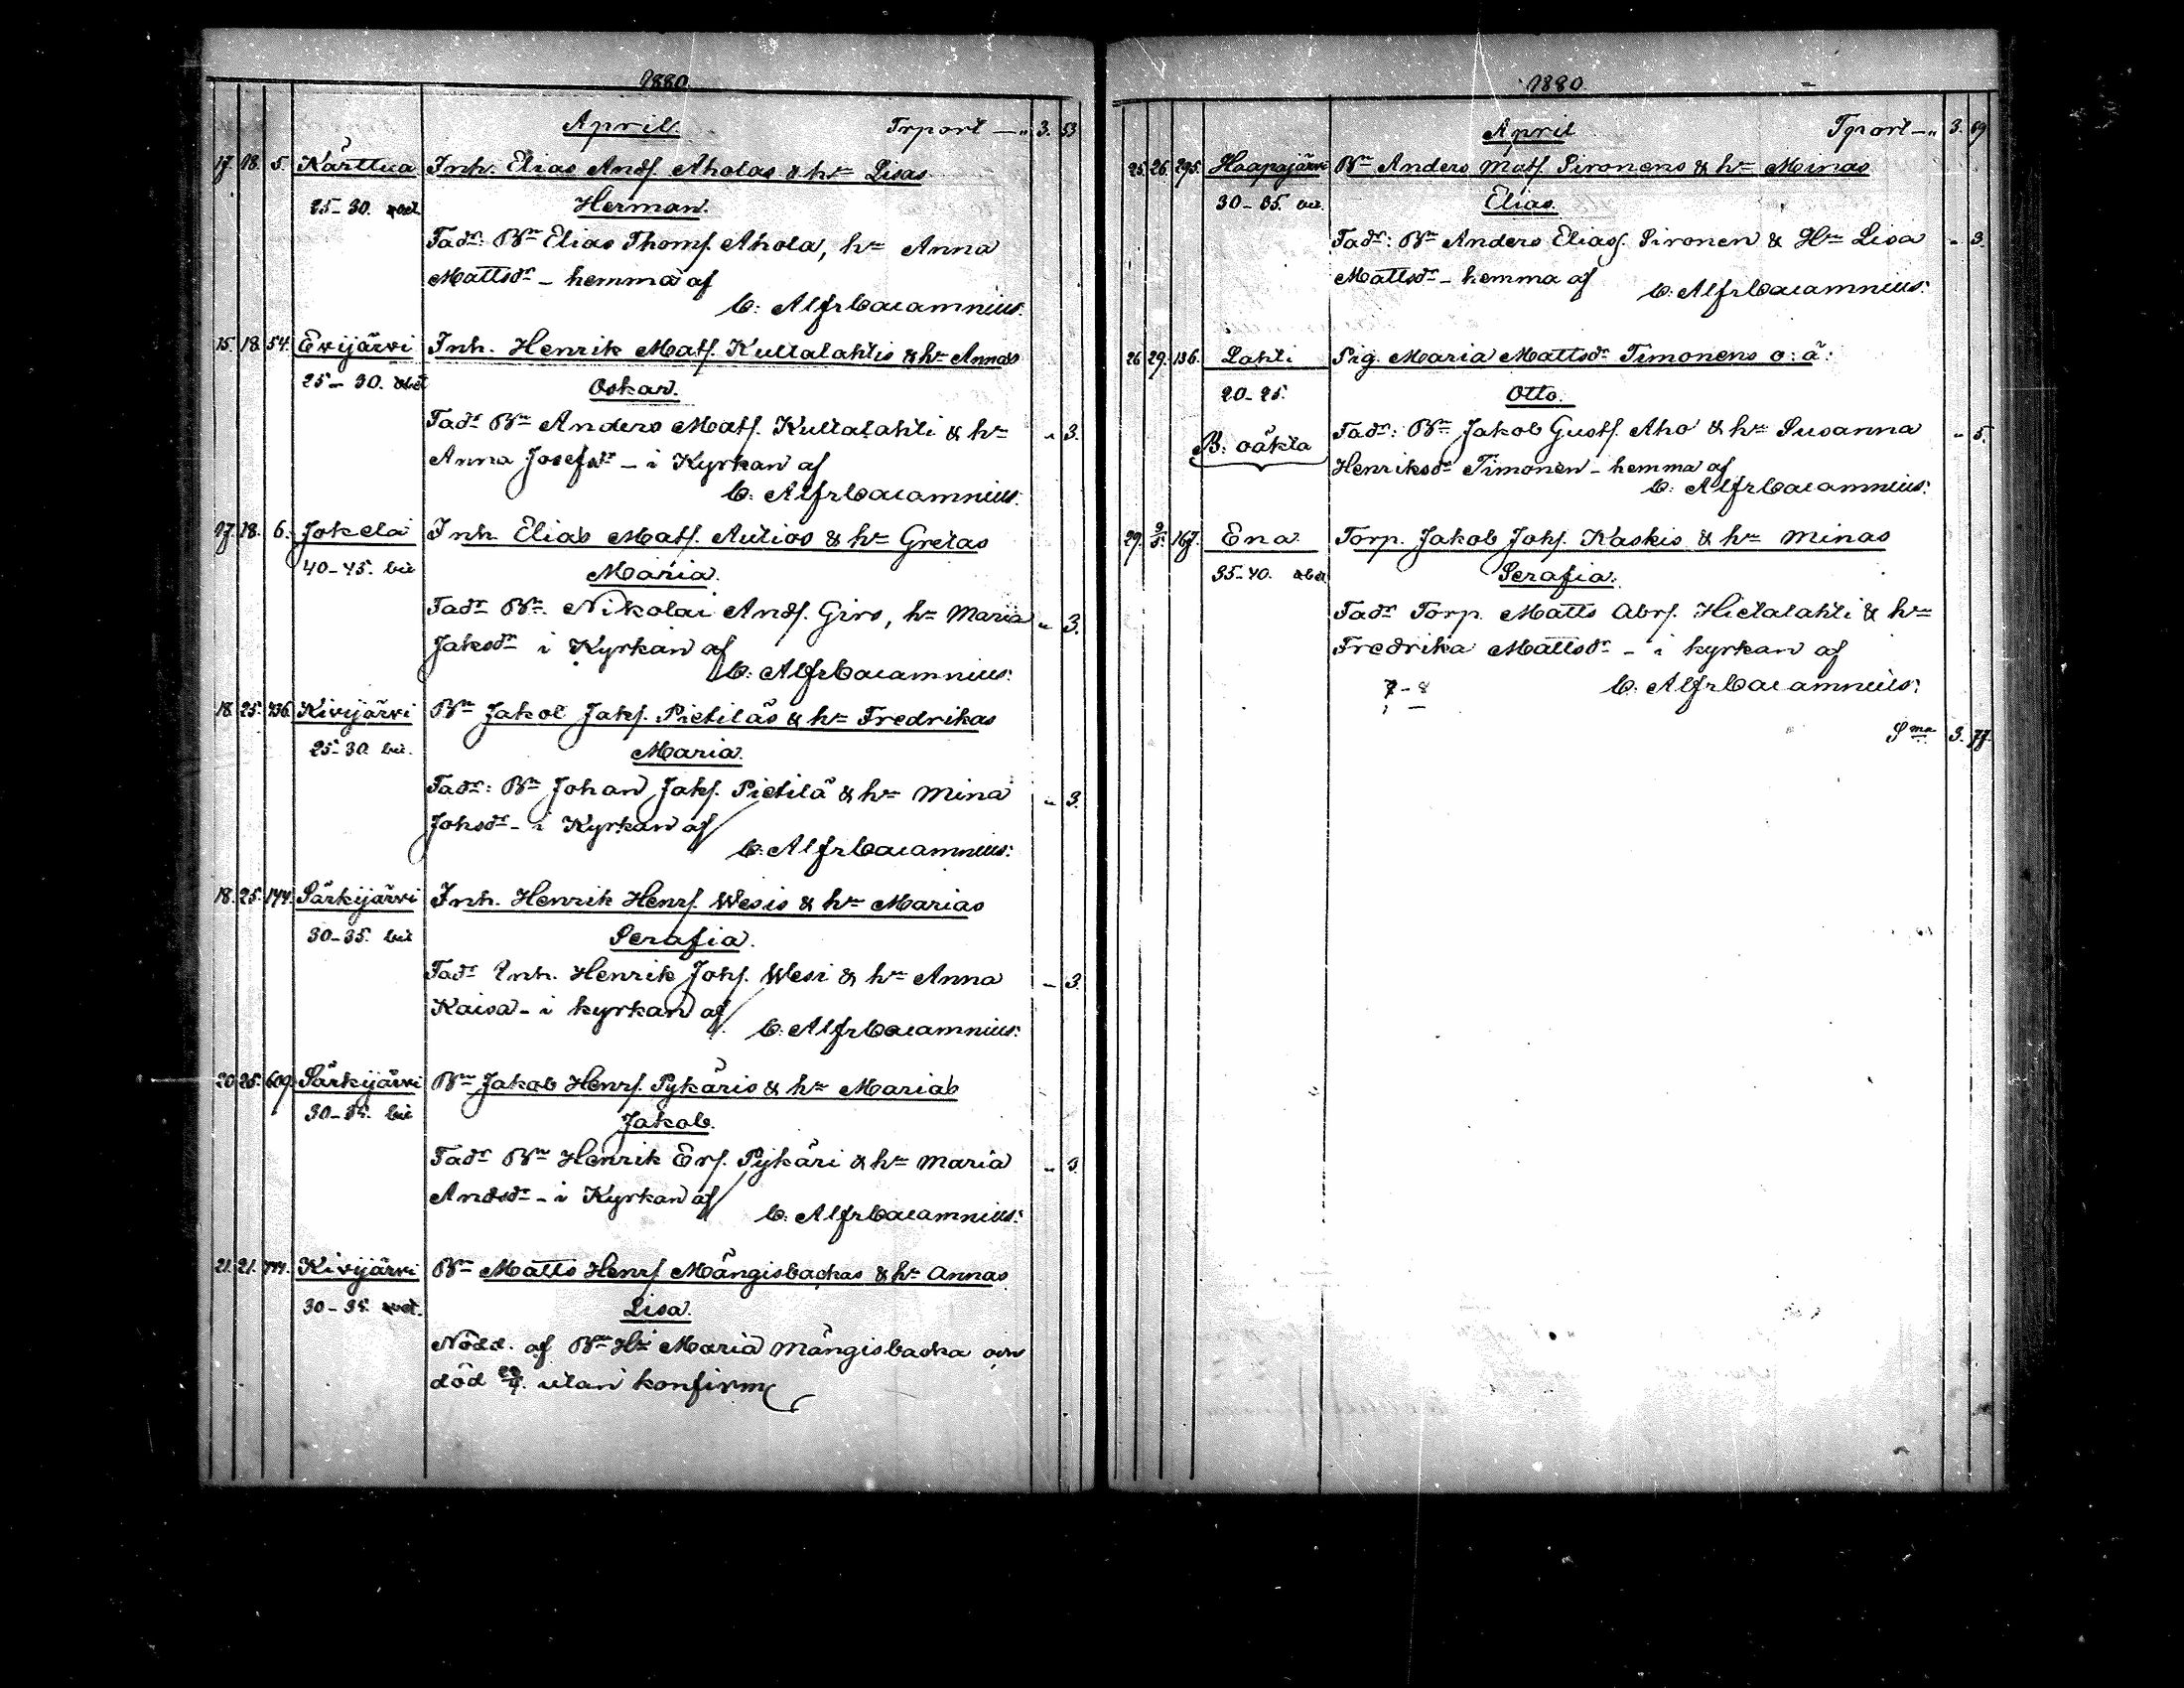 1880.
April. Trport — „ 3. 53
17. 18. 5. Kärttua Inh. Elias Andſ. Aholas & hu Lisas
25-30. Herman.
Fadr: Bn Elias Thomſ. Ahola, hu Anna
Mattsdr - hemma af
C: Alfr Cajamnius:
15. 18. 54. Evijärvi Inh. Henrik Matſ. Kultalahtis & hu Annas
25-30. Oskar.
Fadr Bn Anders Matſ. Kultalahti & hu „ 3.
Anna Josefsdr - i Kyrkan af
C: Alfr Cajamnius:
17. 18. 6. Jokela Inh. Elias Matſ. Autios & hu Gretas
40-45. Maria.
Fadr Bn Nikolai Andſ. Girs, hu Maria „ 3.
Jaksdr i Kyrkan af
C: Alfr Cajamnius:
18. 25. 736. Kivijärvi Bn Jakob Jakſ. Pietiläs & hu Fredrikas
25-30. Maria.
Fadr: Bn Johan Jakſ. Pietilä & hu Mina „ 3.
Johsdr - i Kyrkan af
C: Alfr Cajamnius:
18. 25. 144. Särkijärvi Inh. Henrik Henrſ. Wesis & hu Marias
30-35. Serafia.
Fadr Inh. Henrik Johſ. Wesi & hu Anna „ 3.
Kaisa - i kyrkan af
C: Alfr Cajamnius:
20. 25. 609. Särkijärvi Bn Jakob Henrſ. Pykäris & hu Marias
30-35. Jakob.
Fadr Bn Henrik Erſ. Pykäri & hu Maria „ 3.
Andsdr - i Kyrkan af
C: Alfr Cajamnius:
21. 21. Kivijärvi Bn Matts Henrſ Mångisbackas & hu Annas
30-35. Lisa.
Nödd. af Bn Hu Maria Mångisbacka
död utan konfirm
1880.
April Tport — „ 3. 69
25. 26. 295. Haapajärvi Bn Anders Matſ. Sironens & hu Minas
30-35. Elias.
Fadr: Bn Anders Eliasſ. Sironen & Hu Lisa „ 3.
Mattsdr - hemma af
C: Alfr Cajamnius:
26. 29. 136. Lahti Pig. Maria Mattsdr Timonens o: ä:
20-25. Otto.
B: oäkta Fadr: Bn Jakob Gustſ. Aho & hu Susanna „ 5.
Henriksdr Timonen - hemma af
C: Alfr Cajamnius:
29. 9/5. 167. Ena Torp. Jakob Johſ. Kaskis & hu Minas
35-40. Serafia.
Fadr Torp. Matts Abrſ. Hietalahti & hu
Fredrika Mattsdr - i kyrkan af
7 - 8 C: Alfr Cajamnius:
Sma 3. 77.